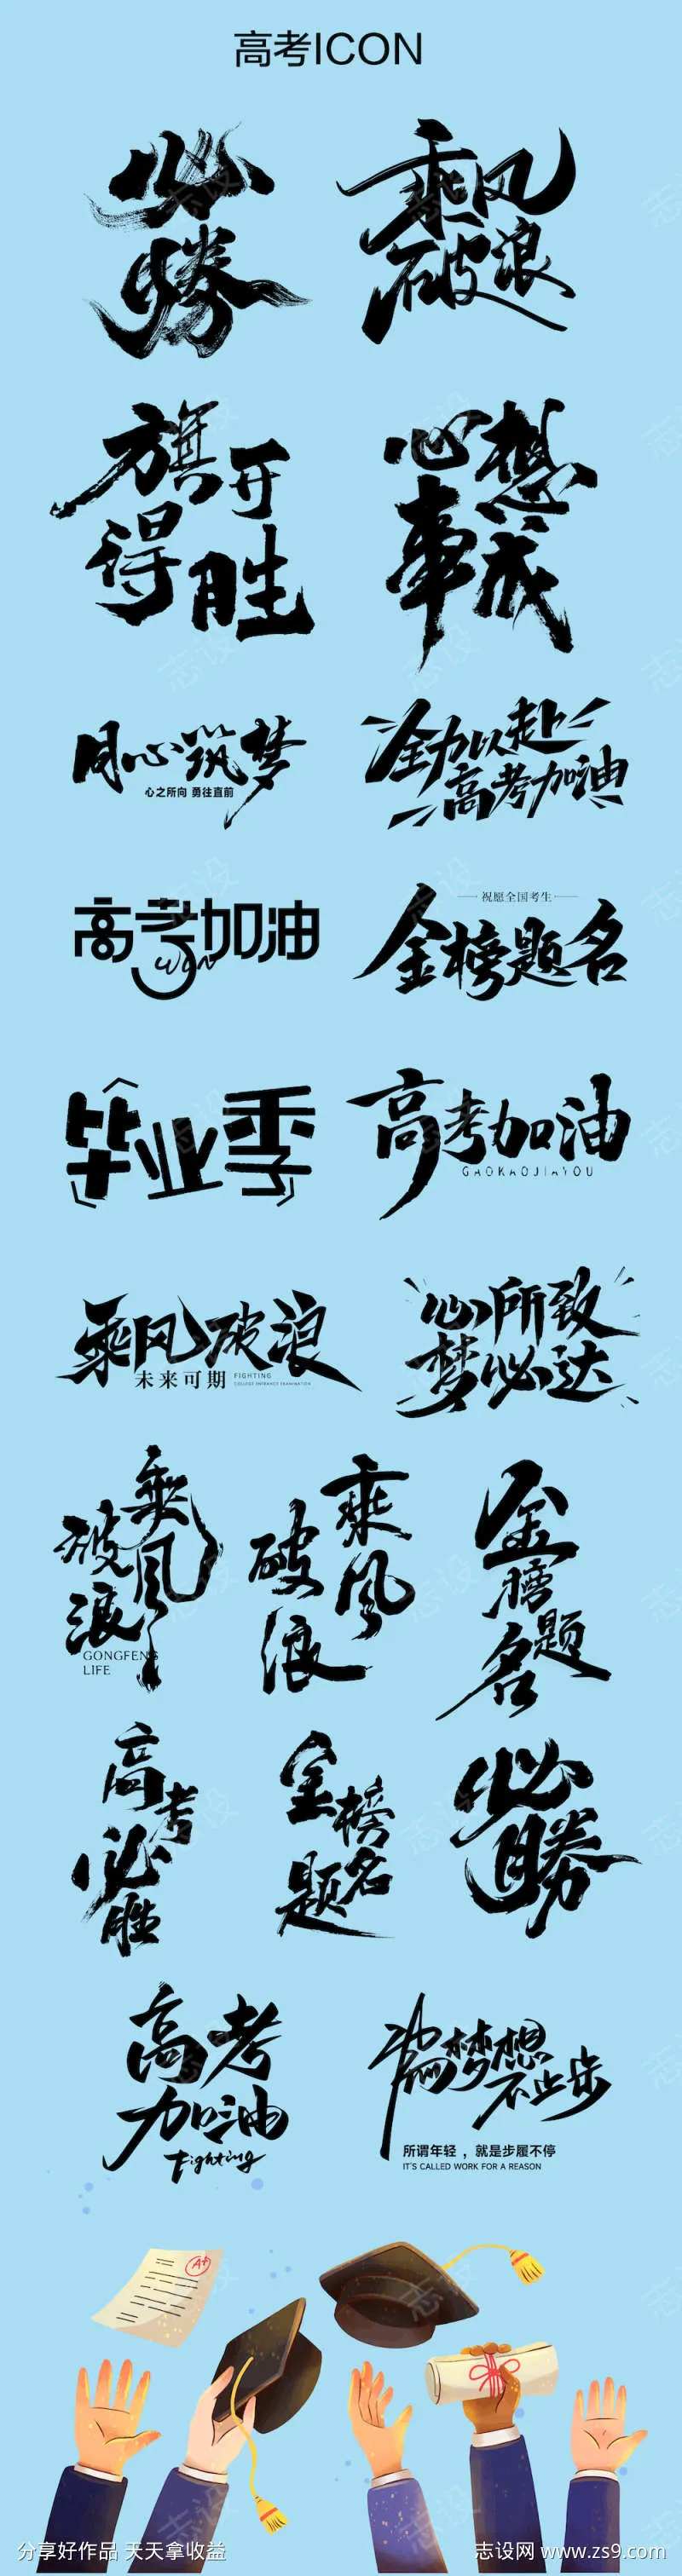 高考ICON
必
勝
乘风
破浪
旗开
得胜
心想
事成
同心筑梦
心之所向 勇往直前
全力以赴
高考加油
高考加油
win
祝愿全国考生
金榜题名
毕业季
高考加油
GAOKAOJIAYOU
乘风破浪
未来可期
FIGHTING
COLLEGE ENTRANCE EXAMINATION
心所致
梦必达
乘风
破浪
GONGFENG
LIFE
乘风
破浪
金榜
题名
高考
必胜
金榜
题名
必勝
高考
加油
Fighting
为梦想
不止步
所谓年轻，就是步履不停
IT'S CALLED WORK FOR A REASON
A+
分享好作品 天天拿收益
志设网 www.zs9.com
志设